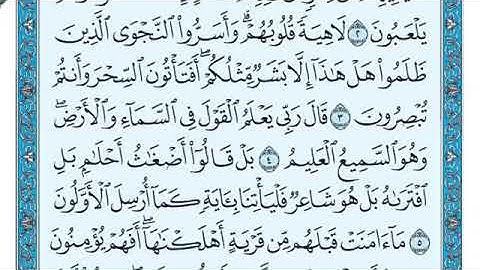 يَلْعَبُونَ ٢ لَاهِيَةً قُلُوبُهُمْ ۗ وَأَسَرُّوا۟ ٱلنَّجْوَى ٱلَّذِينَ
ظَلَمُوا۟ هَلْ هَٰذَآ إِلَّا بَشَرٌ مِّثْلُكُمْ ۖ أَفَتَأْتُونَ ٱلسِّحْرَ وَأَنتُمْ
تُبْصِرُونَ ٣ قَالَ رَبِّى يَعْلَمُ ٱلْقَوْلَ فِى ٱلسَّمَآءِ وَٱلْأَرْضِ ۖ
وَهُوَ ٱلسَّمِيعُ ٱلْعَلِيمُ ٤ بَلْ قَالُوٓا۟ أَضْغَٰثُ أَحْلَٰمٍۭ بَلِ
ٱفْتَرَىٰهُ بَلْ هُوَ شَاعِرٌ فَلْيَأْتِنَا بِـَٔايَةٍ كَمَآ أُرْسِلَ ٱلْأَوَّلُونَ
٥ مَآ ءَامَنَتْ قَبْلَهُم مِّن قَرْيَةٍ أَهْلَكْنَٰهَآ ۖ أَفَهُمْ يُؤْمِنُونَ